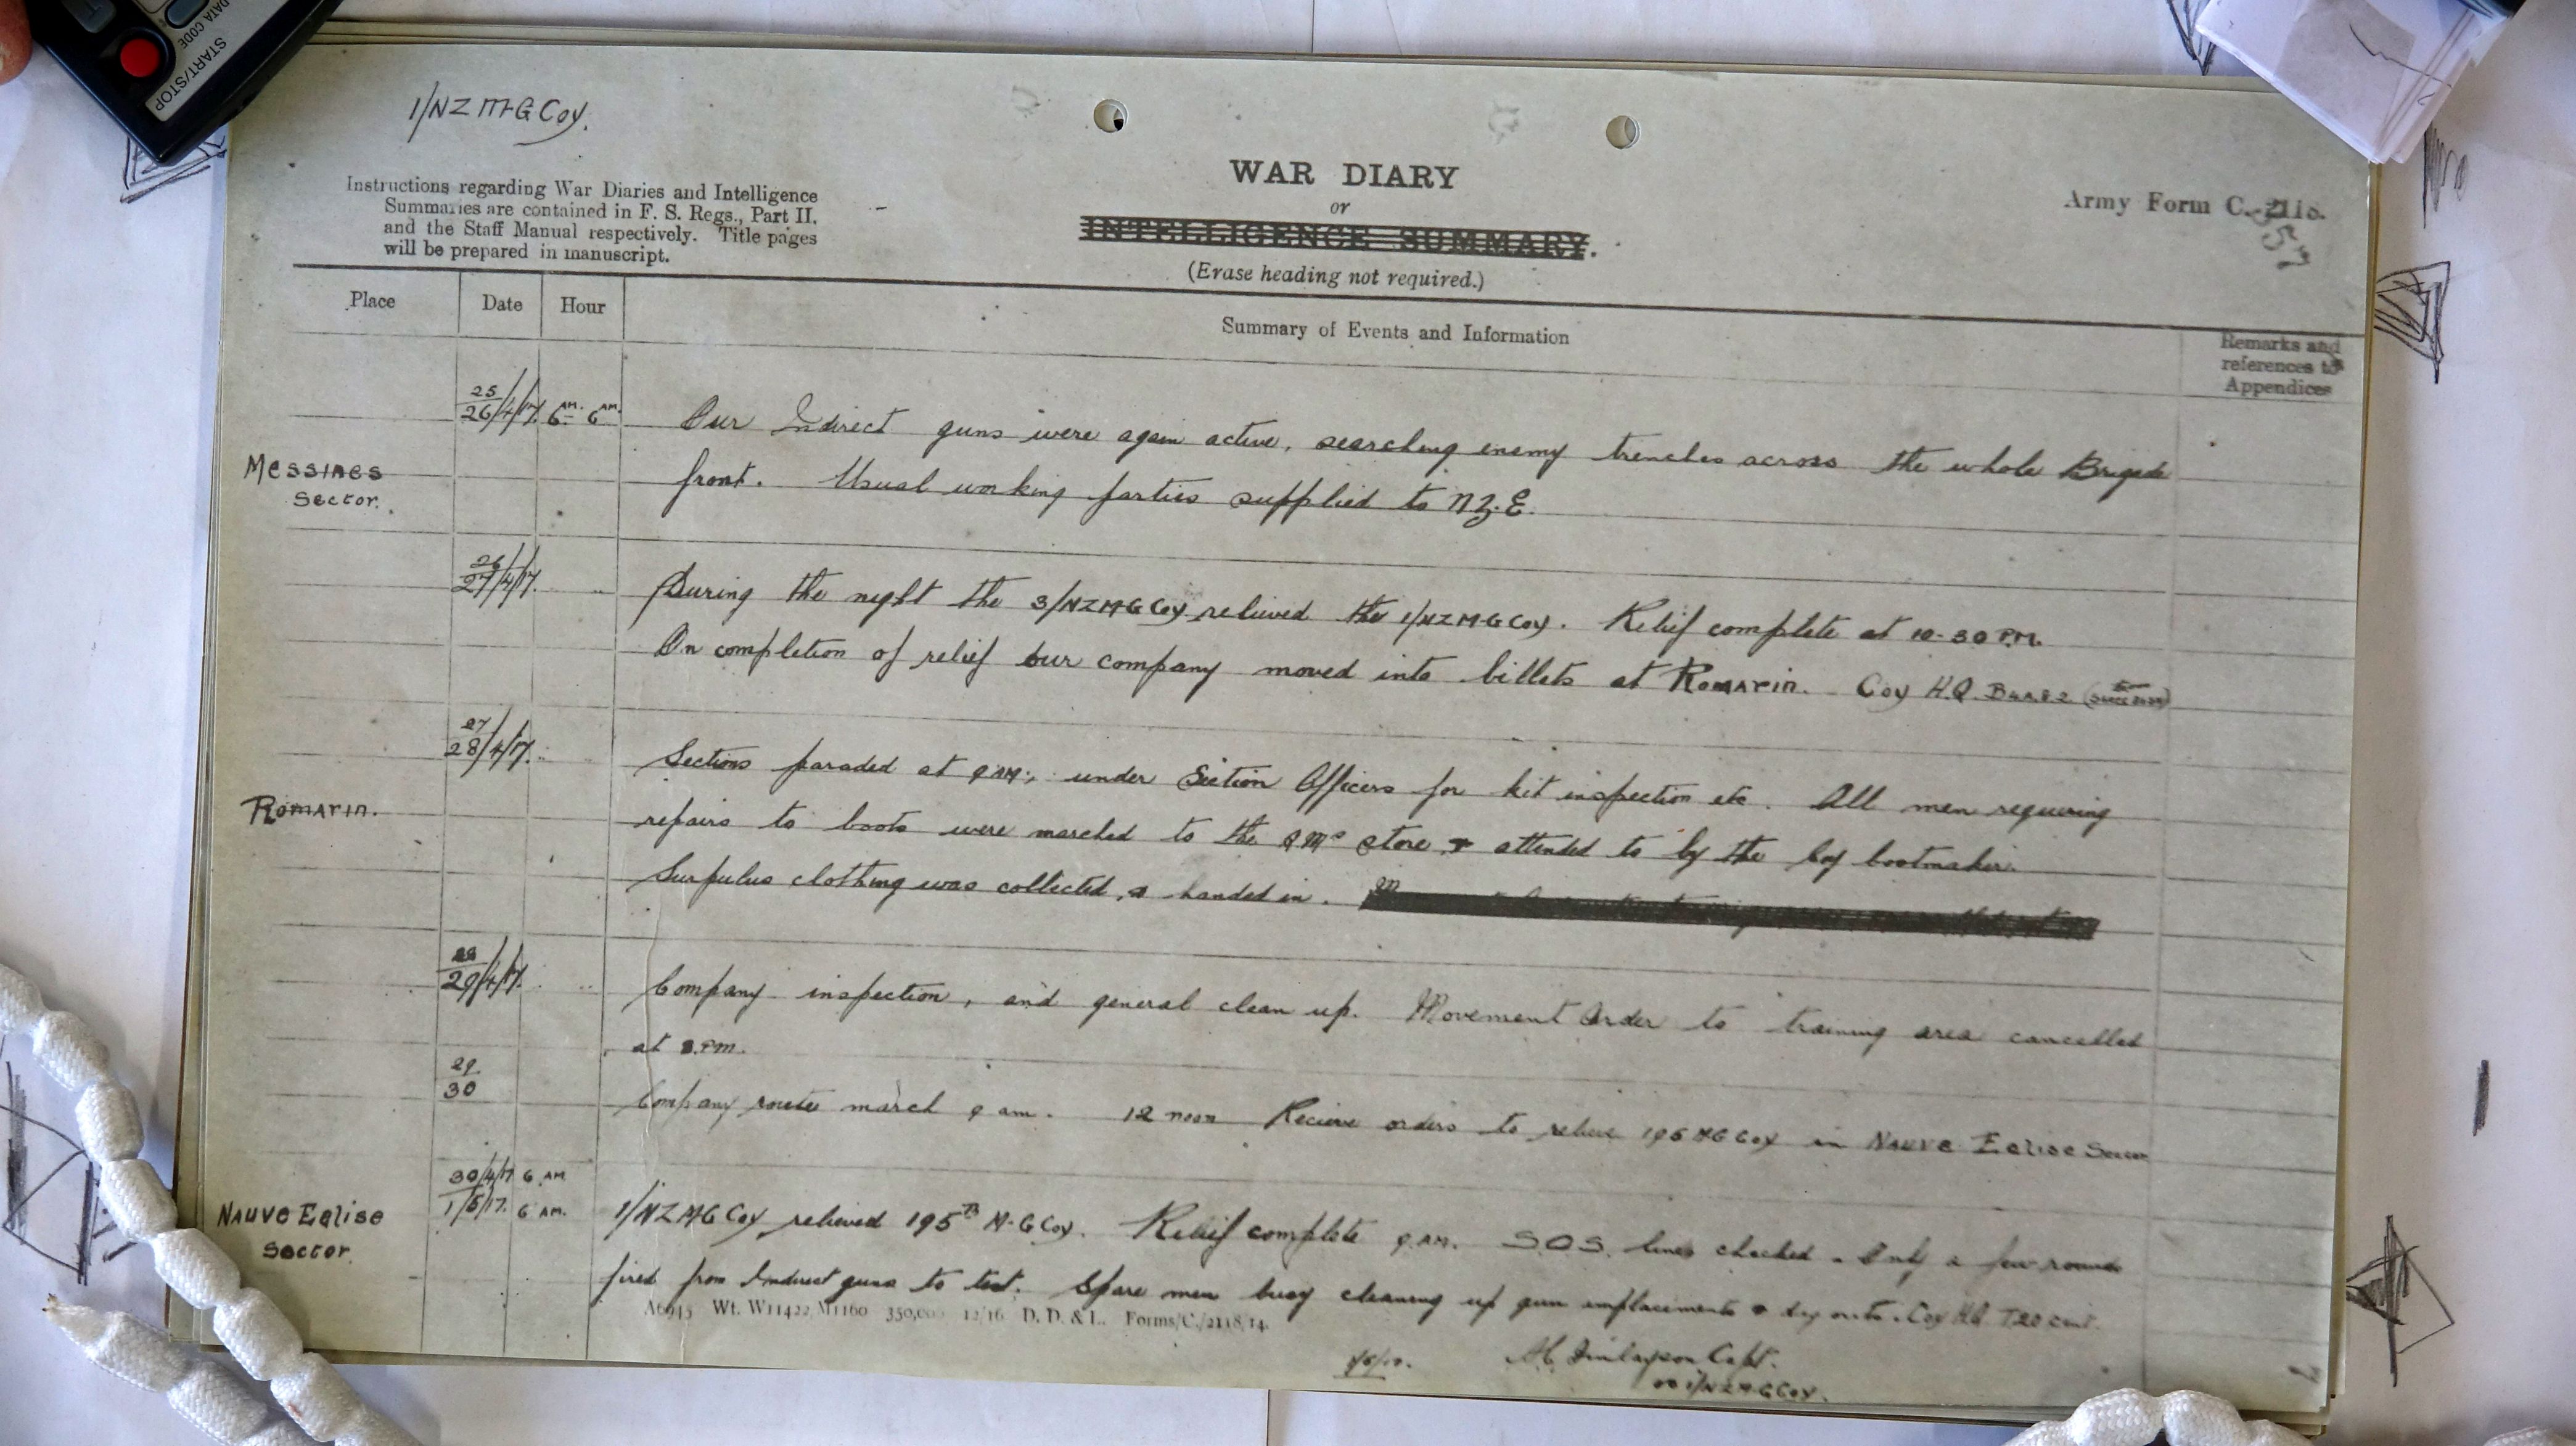 DATA CODE
START/STOP
1/NZ M-G Coy.
WAR DIARY
or
INTELLIGENCE SUMMARY.
(Erase heading not required.)
Instructions regarding War Diaries and Intelligence
Summaries are contained in F. S. Regs., Part II.
and the Staff Manual respectively. Title pages
will be prepared in manuscript.
Army Form C. 2118.
Place Date Hour Summary of Events and Information Remarks and
references to
Appendices
25
26/4/17. 6 AM. 6 AM. Our Indirect guns were again active, searching enemy trenches across the whole Brigade
Messines
Sector. front. Usual working parties supplied to N.Z.E.
26
27/4/17. During the night the 3/NZ M-G Coy relieved the 1/NZ M-G Coy. Relief complete at 10-30 PM.
On completion of relief our company moved into billets at Romarin. Coy H.Q.
27
28/4/17. Sections paraded at 9 AM; under Section Officers for kit inspection etc. All men requiring
Romarin. repairs to boots were marched to the QMs store & attended to by the Coy bootmaker.
Surpulus clothing was collected, & handed in.
28
29/4/17. Company inspection, and general clean up. Movement Order to training area cancelled
at 8. PM.
29
30 Company route march 9 am. 12 noon Recieve orders to relieve 195 MG Coy in Nauve Eglise Sector
30/4/17 6 AM
1/5/17. 6 AM. 1/NZ MG Coy relieved 195th M-G Coy. Relief complete 9. AM. S.O.S. lines checked. Only a few rounds
Nauve Eglise
Sector. fired from Indirect guns to test. Spare men busy cleaning up gun emplacements & dug outs. Coy HQ
A6945 Wt. W11422/M1160 350,000 12/16 D. D. & L. Forms/C./2118/14.
Finlayson Capt.
OC 1/NZ M-G Coy.